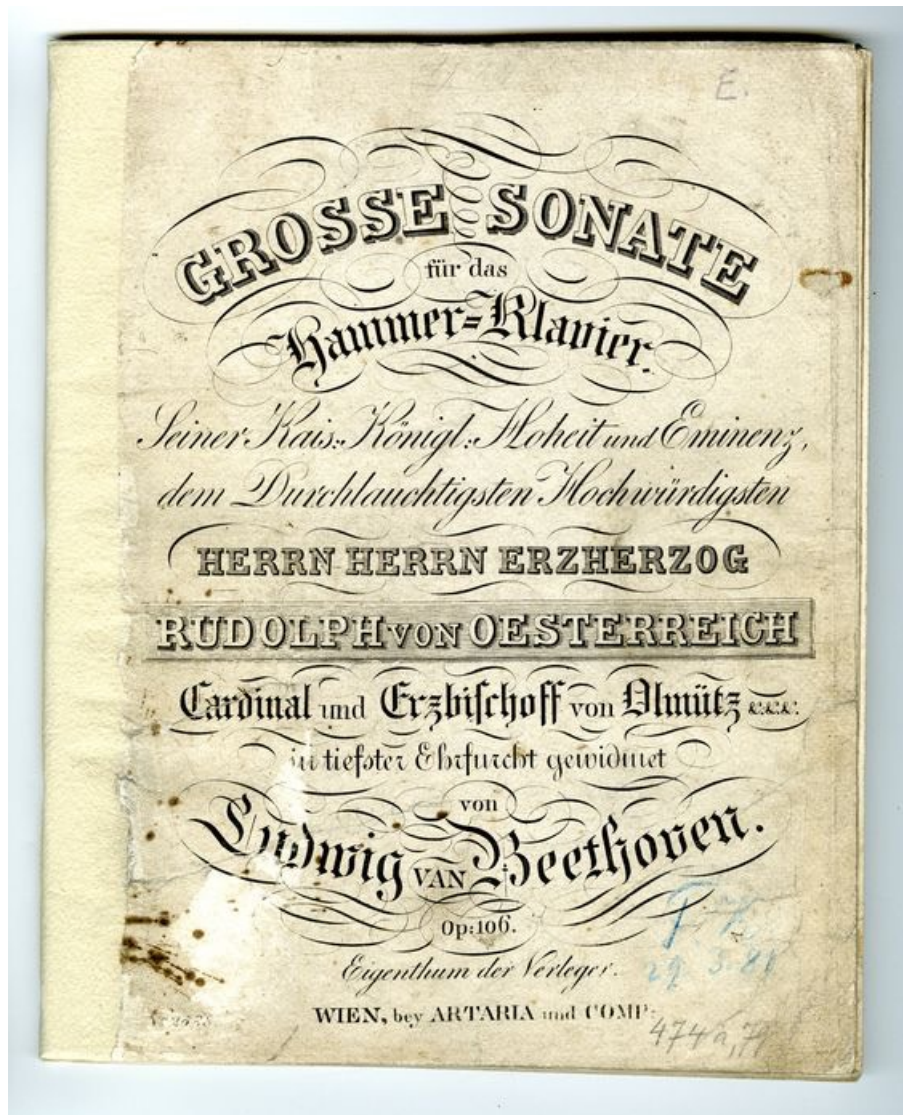 E.
GROSSE SONATE
für das
Hammer=Klavier.
Seiner Kais: Königl: Hoheit und Eminenz,
dem Durchlauchtigsten Hochwürdigsten
HERRN HERRN ERZHERZOG
RUDOLPH VON OESTERREICH
Cardinal und Erzbischoff von Olmütz &.&.&.
in tiefster Ehrfurcht gewidmet
von
Ludwig VAN Beethoven.
Op: 106.
Eigenthum der Verleger.
WIEN, bey ARTARIA und COMP: